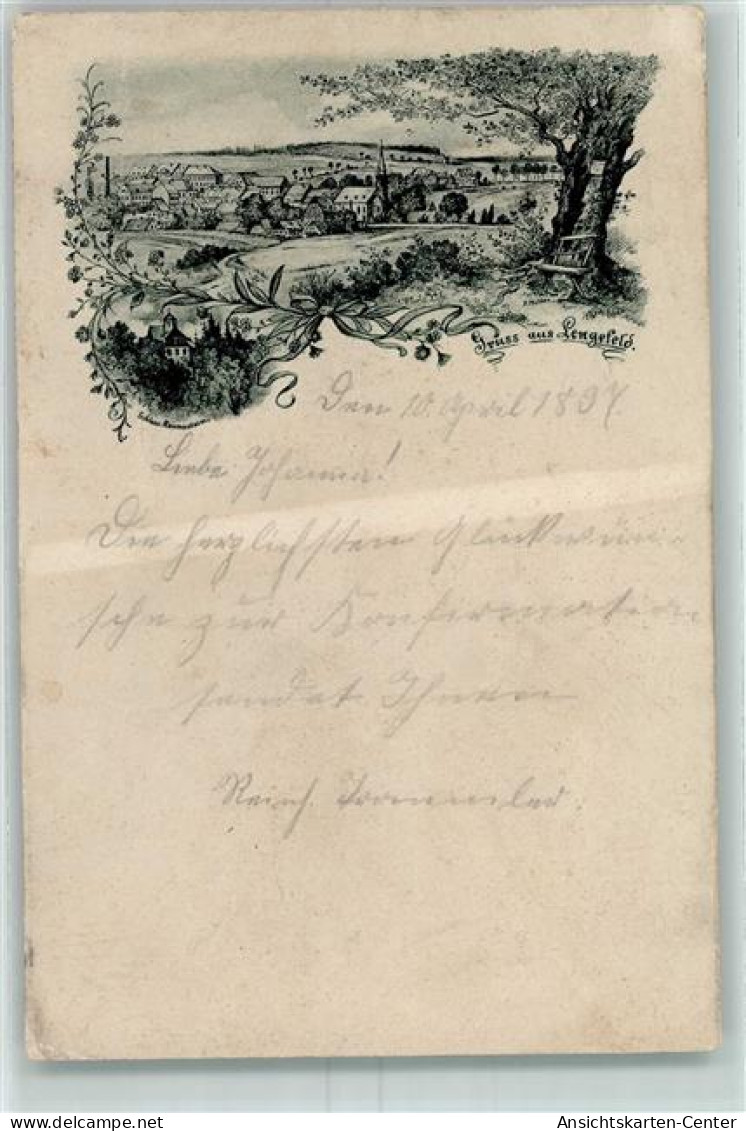 Gruss aus Lengefeld.
Den 10. April 1897.
Liebe Johanna!
Die herzlichsten Glückwün-
sche zur Konfirmation
sendet Ihnen
Reinh.
Ansichtskarten-Center